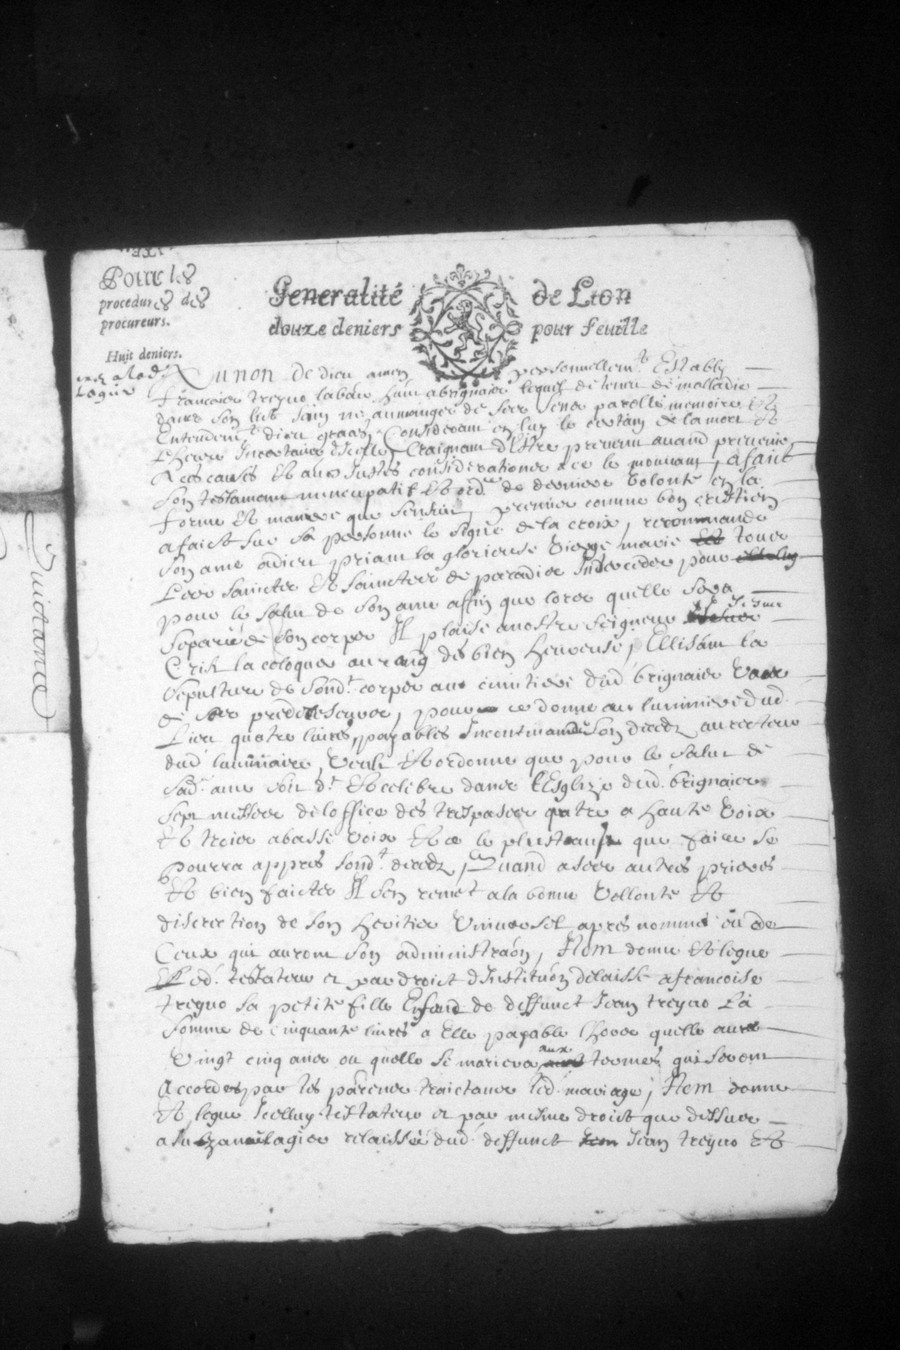 Pour les
procedures des
procureurs.
Huit deniers.
Generalité de Lion
douze deniers pour feuille
Quictance
Au nom de dieu amen personnellemt Estably
francoise treyno laboureur a brignaier lequel detenu de malladie
dans son lict sain ses sens parolle memoire Et
Entendemt dieu graces, Considerant en luy le certain de la mort Et
L'heure Incertaine d'Icelle, Craignant d'Estre prevenu avant prevenir
A ces causes Et aues Justes considerations a ce le mouvant, a faict
son testament nuncupatif Et ordce de derniere volonte en la
forme Et maniere que sensuit, premier comme bon crestien
a faict sur sa personne le signe de la croix, recommande
son ame a dieu priant la glorieuse vierge marie Et touer
Lees sainctes Et sainctees de paradies Interceder pour
pour le salut de son ame affin que lorce quelle sera
Separée de son corps Il plaise a nostre seigneur Jesus
Crist la coloquer au rang des bien heureuse, Ellisant la
Sepulture de sondt corps au cimitiere dud brignaier
de ses predecesseurs, pour ce donne au luminiere dud
Lieu quatre livres payables Incontinant son decedz au recteur
dud luminaire, Veult Et ordonne que pour le salut de
sad ame soit dt Et celebre dans l'Esglize dud brignaier
sept messes de loffice des trespasses quatre a haute voix
Et trois a basse voix Et ce le plustost que faire se
Pourra appres sondt decedz, Quand a sees autres prieres
Et bien faictes Il sen remet a la bonne vollonte Et
discrection de son heritier Universel apres nommé ou de
Ceux qui auront son administraon, Item donne Et legue
Led. testateur et par droict d'Instituon delaisse a francoise
treyno sa petite fille Enfand de deffunct Jean treyno La
Somme de cinquante livres a Elle payable lhors quelle aura
Vingt cinq ans ou quelle se mariera aux termes qui seront
Accordes par les parens traictans led mariage, Item donne
Et legue Icelluy testateur et par mesme droict que dessus
a lagier relaissée dud deffunct Jean treyno Et